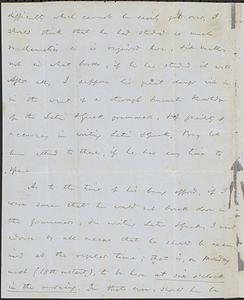 difficulty which cannot be easily got over. I
should think that he had studied as much
mathematics as is required here, & it matters
not in what books, if he has studied it well.
After all, I suppose his great danger will be
in the want of a thorough knowledge
of the Latin & Greek grammars, & of facility &
accuracy in writing Latin & Greek. Pray let
him attend to these, if he has any time to
spare.
As to the time of his being offered, if I
were sure that he would not break down in
the grammars, & in writing Latin & Greek, I would
advise by all means that he should be exam-
ined at the regular time; that is, on Monday
next (18th instant), to be here at six o'clock
in the morning. In that case, should he be